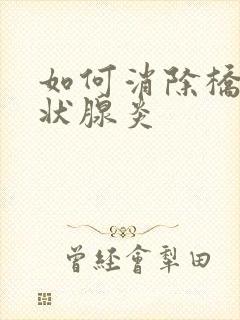 如何消除橋
状腺炎
曾经會犁田